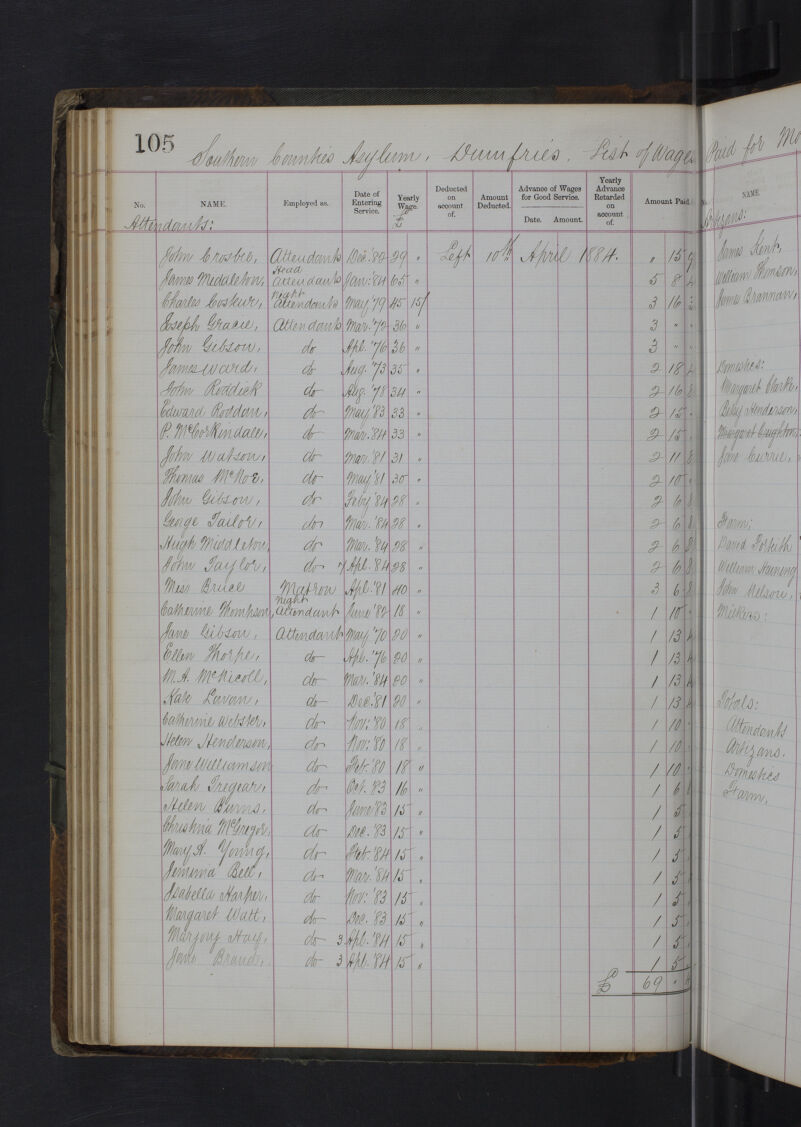 105
Southern Counties Asylum, Dumfries. List of Wages Paid for Mo
No. NAME. Employed as. Date of Entering Service. Yearly Wage. Deducted on account of. Amount Deducted. Advance of Wages for Good Service. Date. Amount. Yearly Advance Retarded on account of. Amount Paid.
£
Attendants:
John Crosbie, Attendants Dec. '82 29 " Left 10th April 1884. " 15 9
James Middleton, Head Attendants Jan: '84 65 " 5 8 4
Charles Costeur, Night Attendants May '79 45 15/ 3 16 3
Joseph Gracie, Attendants Mar. '72 36 " 3 " "
John Gibson, do Apl. '76 36 " 3 " "
James Ward, do Aug. '73 35 " 2 18 4
John Roddick do Aug. '78 34 " 2 16 8
Edward Roddan, do May '83 33 " 2 15 "
P. McCorkindale, do Mar. '84 33 " 2 15 "
John Watson, do Mar. '81 31 " 2 11 8
Thomas McNoe, do May '81 30 " 2 10 "
John Gibson, do Feby '84 28 " 2 6 8
George Tailor, do Mar. '84 28 " 2 6 8
Hugh Middleton, do Mar. '84 28 " 2 6 8
John Taylor, do 7 Apl. '84 28 " 2 6 8
Miss Bruce Matron Apl. '81 40 " 3 6 8
Catherine Thompson, Night Attendant June '82 18 " 1 10 "
Jane Gibson, Attendant May '70 20 " 1 13 4
Ellen Thorpe, do Apl. '76 20 " 1 13 4
M. A. McNicoll, do Mar. '84 20 " 1 13 4
Kate Lavan, do Dec. '81 20 " 1 13 4
Catherine Webster, do Nov: '80 18 " 1 10 "
Helen Henderson, do Nov: '80 18 " 1 10 "
Jane Williamson do Feb. '80 18 " 1 10 "
Sarah Tregear, do Oct. '83 16 " 1 6 8
Helen Burns, do June '83 15 " 1 5
Christina McGregor, do Dec. '83 15 " 1 5
Mary A. Young, do Feb. '84 15 " 1 5
Jemima Bell, do Mar. '84 15 " 1 5
Isabella Harper, do Nov: '83 15 " 1 5
Margaret Watt, do Dec. '83 15 " 1 5
Marjory Hay, do 3 Apl. '84 15 " 1 5
Jane Brand, do 3 Apl. '84 15 " 1 5
£ 69 "
No. NAME
Artizans:
James Kent,
William Thomson,
James Brannan,
Domestics:
Margaret Clarke,
Betsy Henderson,
Margaret Creighton,
Jane Currie,
Farm:
David Forsith
William
John Nelson,
Totals:
Attendants
Artizans.
Domestics
Farm,